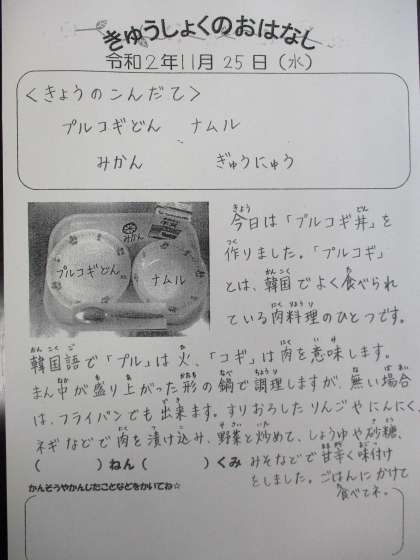 きゅうしょくのおはなし
令和2年11月25日(水)
<きょうのこんだて>
プルコギどん ナムル
みかん ぎゅうにゅう
みかん
プルコギどん
ナムル
今日は「プルコギ丼」を
作りました。「プルコギ」
とは、韓国でよく食べられ
ている肉料理のひとつです。
韓国語で「プル」は火、「コギ」は肉を意味します。
まん中が盛り上がった形の鍋で調理しますが、無い場合
は、フライパンでも出来ます。すりおろしたりんごやにんにく、
ネギなどで肉を漬け込み、野菜と炒めて、しょうゆや砂糖、
( )ねん( )くみ みそなどで甘辛く味付け
をしました。ごはんにかけて
食べてネ。
かんそうやかんしたことなどをかいてね☆